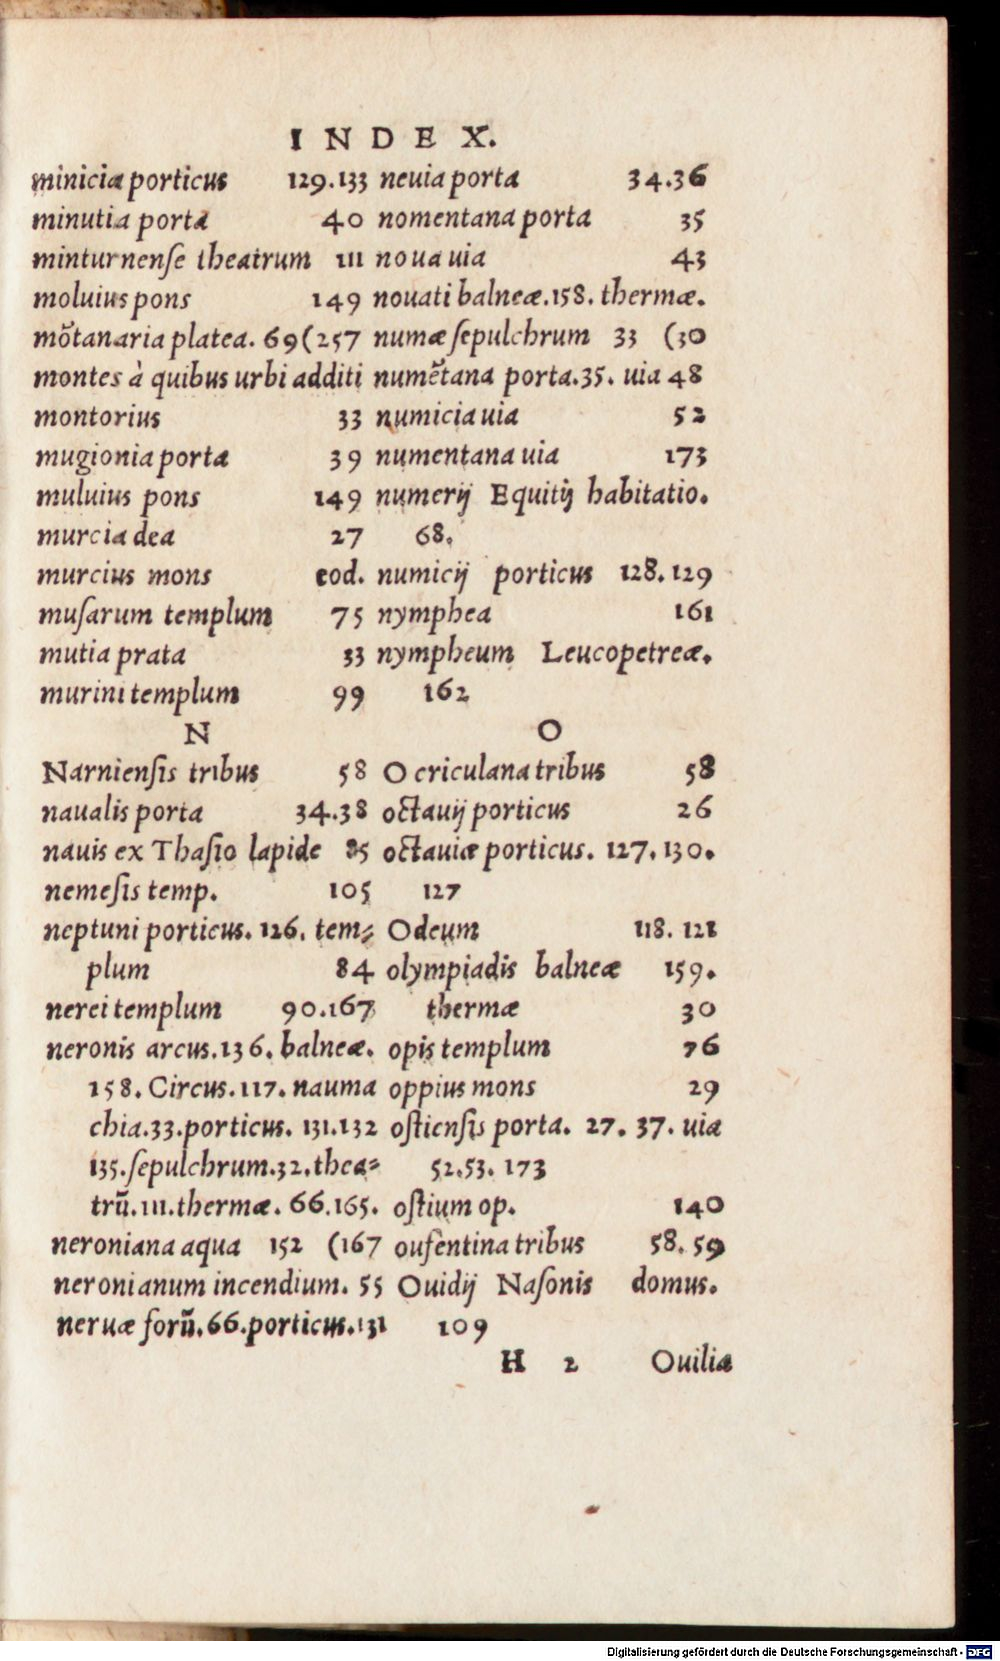 INDEX.
miniciæ porticus 129.133
minutia porta 40
minturnense theatrum 111
moluius pons 149
mõtanaria platea. 69 (257
montes à quibus urbi additi
montorius 33
mugionia porta 39
muluius pons 149
murcia dea 27
murcius mons eod.
musarum templum 75
mutia prata 33
murini templum 99
N
Narniensis tribus 58
naualis porta 34.38
nauis ex Thasio lapide 85
nemesis temp. 105
neptuni porticus. 126. tem-
plum 84
nerei templum 90.167
neronis arcus.136. balneæ.
158. Circus.117. nauma
chia.33.porticus. 131.132
135.sepulchrum.32.thea-
trũ.111.thermæ. 66.165.
neroniana aqua 152 (167
neronianum incendium. 55
neruæ forũ.66.porticus.131
neuia porta 34.36
nomentana porta 35
noua uia 43
nouati balneæ.158. thermæ.
numæ sepulchrum 33 (30
numẽtana porta.35. uia 48
numicia uia 52
numentana uia 173
numerij Equitij habitatio.
68.
numicij porticus 128.129
nymphea 161
nympheum Leucopetreæ.
162
O
Ocriculana tribus 58
octauij porticus 26
octauiæ porticus. 127.130.
127
Odeum 118. 121
olympiadis balneæ 159.
thermæ 30
opis templum 76
oppius mons 29
ostiensis porta. 27. 37. uia
52.53. 173
ostium op. 140
oufentina tribus 58.59
Ouidij Nasonis domus.
109
H 2 Ouilia
Digitalisierung gefördert durch die Deutsche Forschungsgemeinschaft - DFG